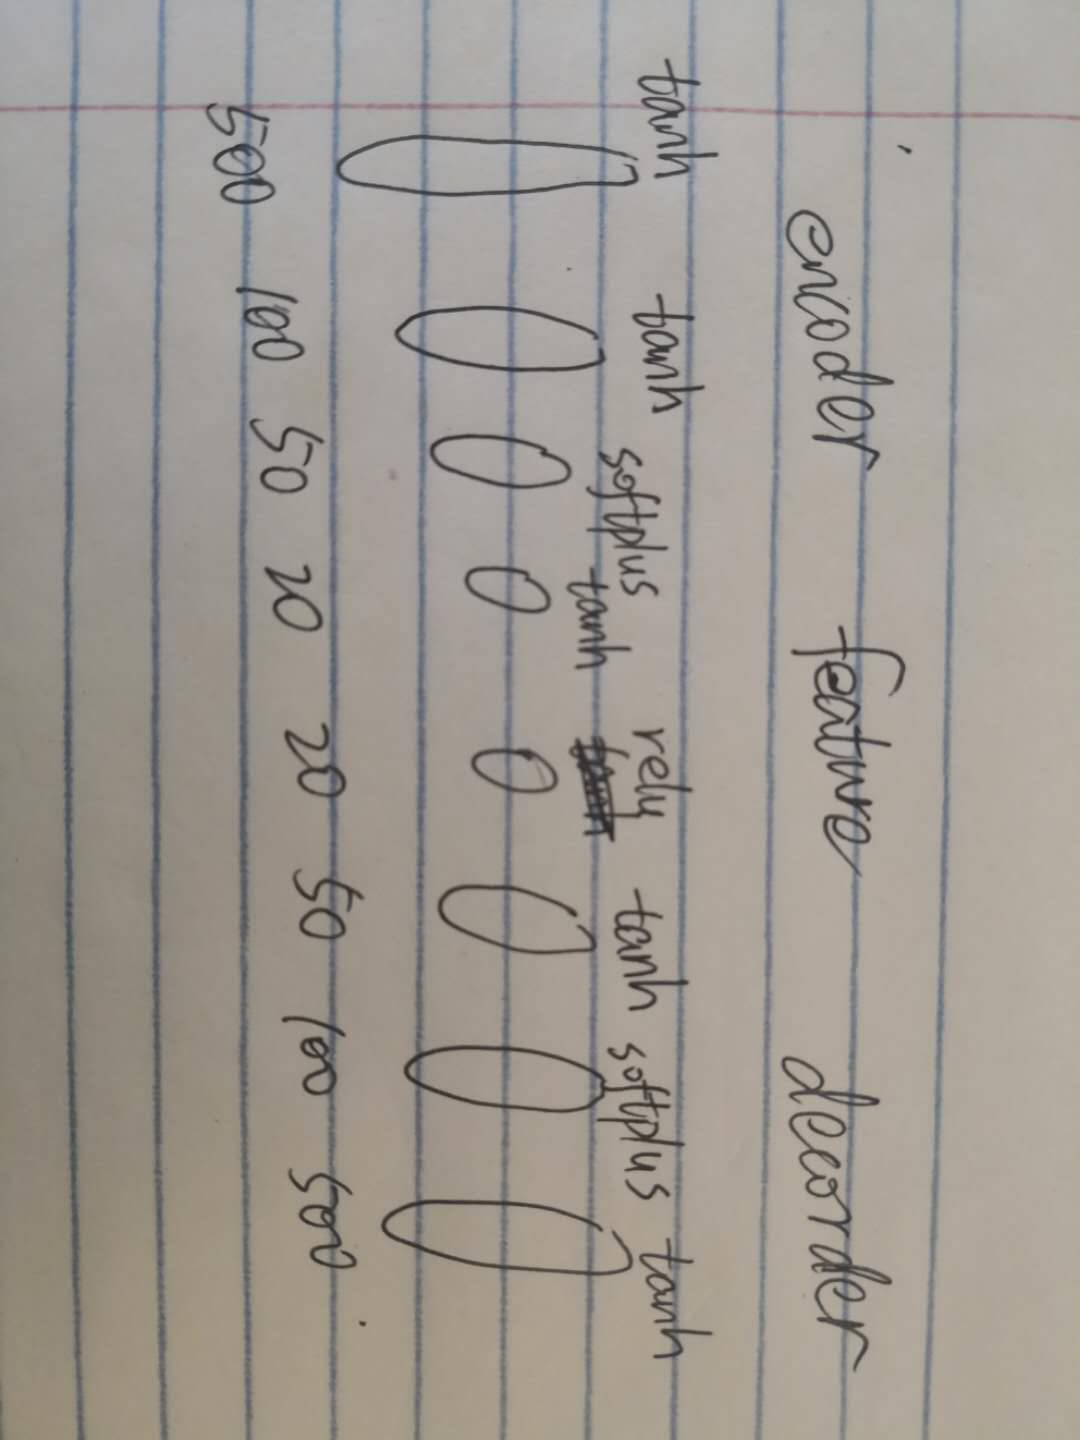 encoder feature decorder
tanh tanh softplus tanh rely tanh softplus tanh
500 100 50 20 20 50 100 500